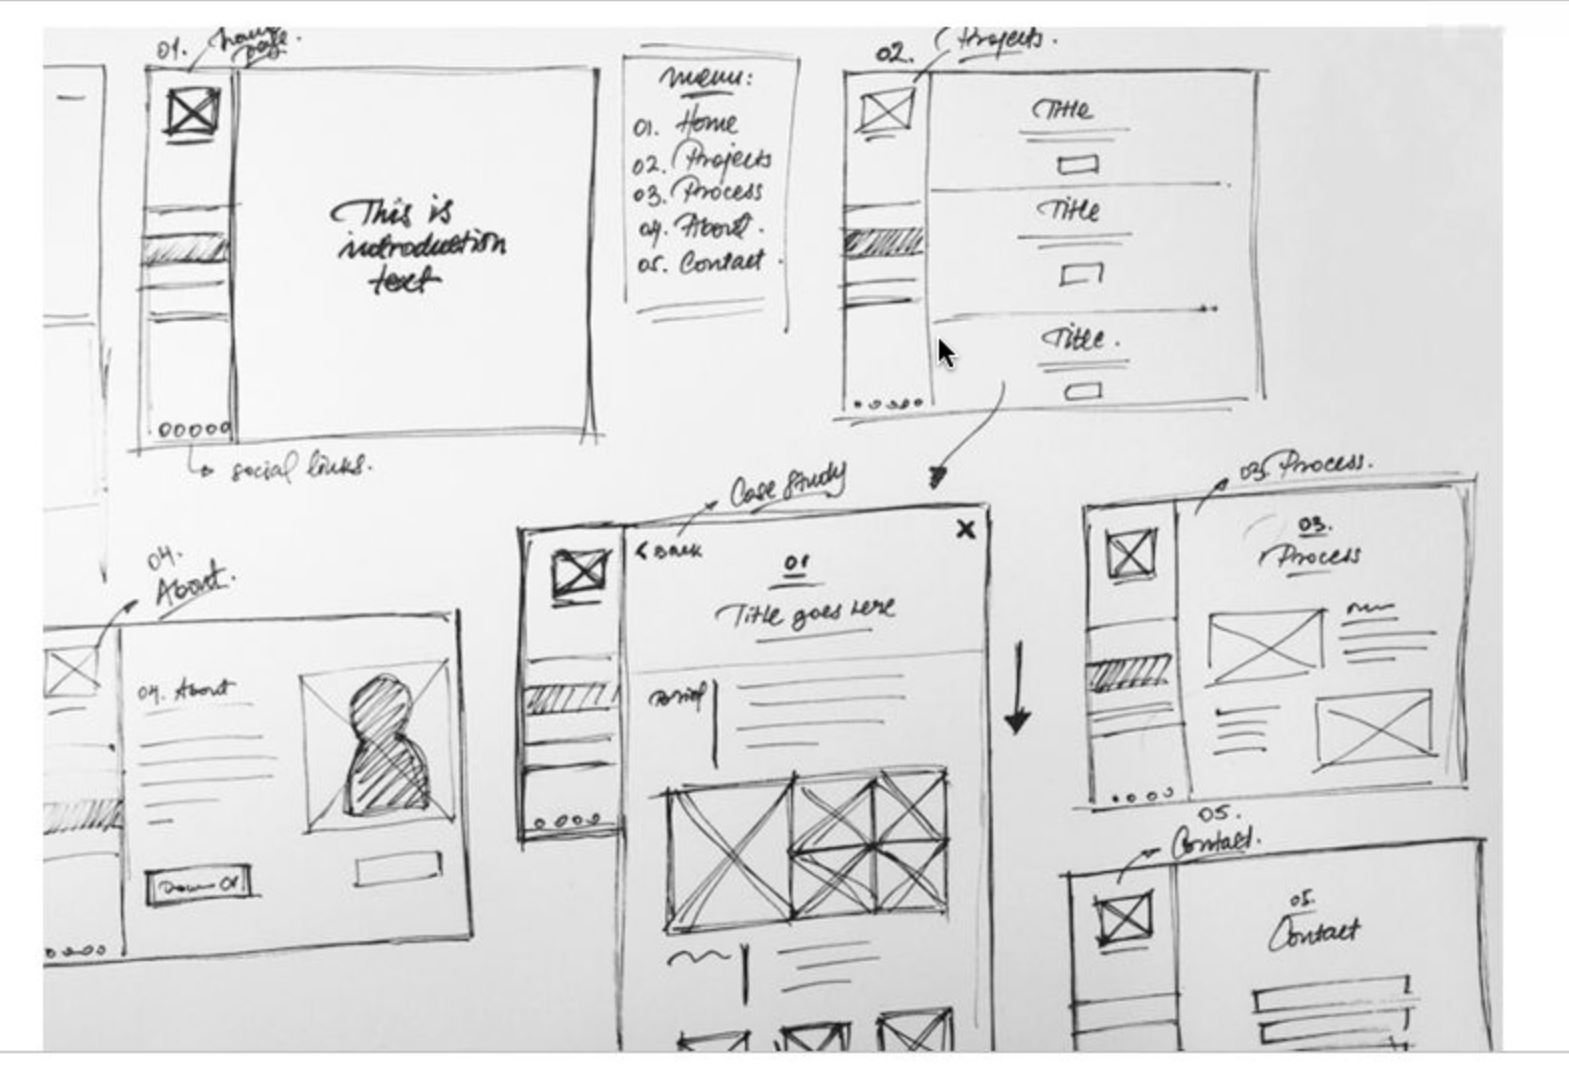 01. home
page.
This is
introduction
text
social links.
menu:
01. Home
02. Projects
03. Process
04. About.
05. Contact
02. Projects.
Title
Title
Title.
Case Study
< Back
X
01
Title goes here
Brief
03. Process.
03.
Process
04.
About.
04. About
05.
Contact.
05.
Contact